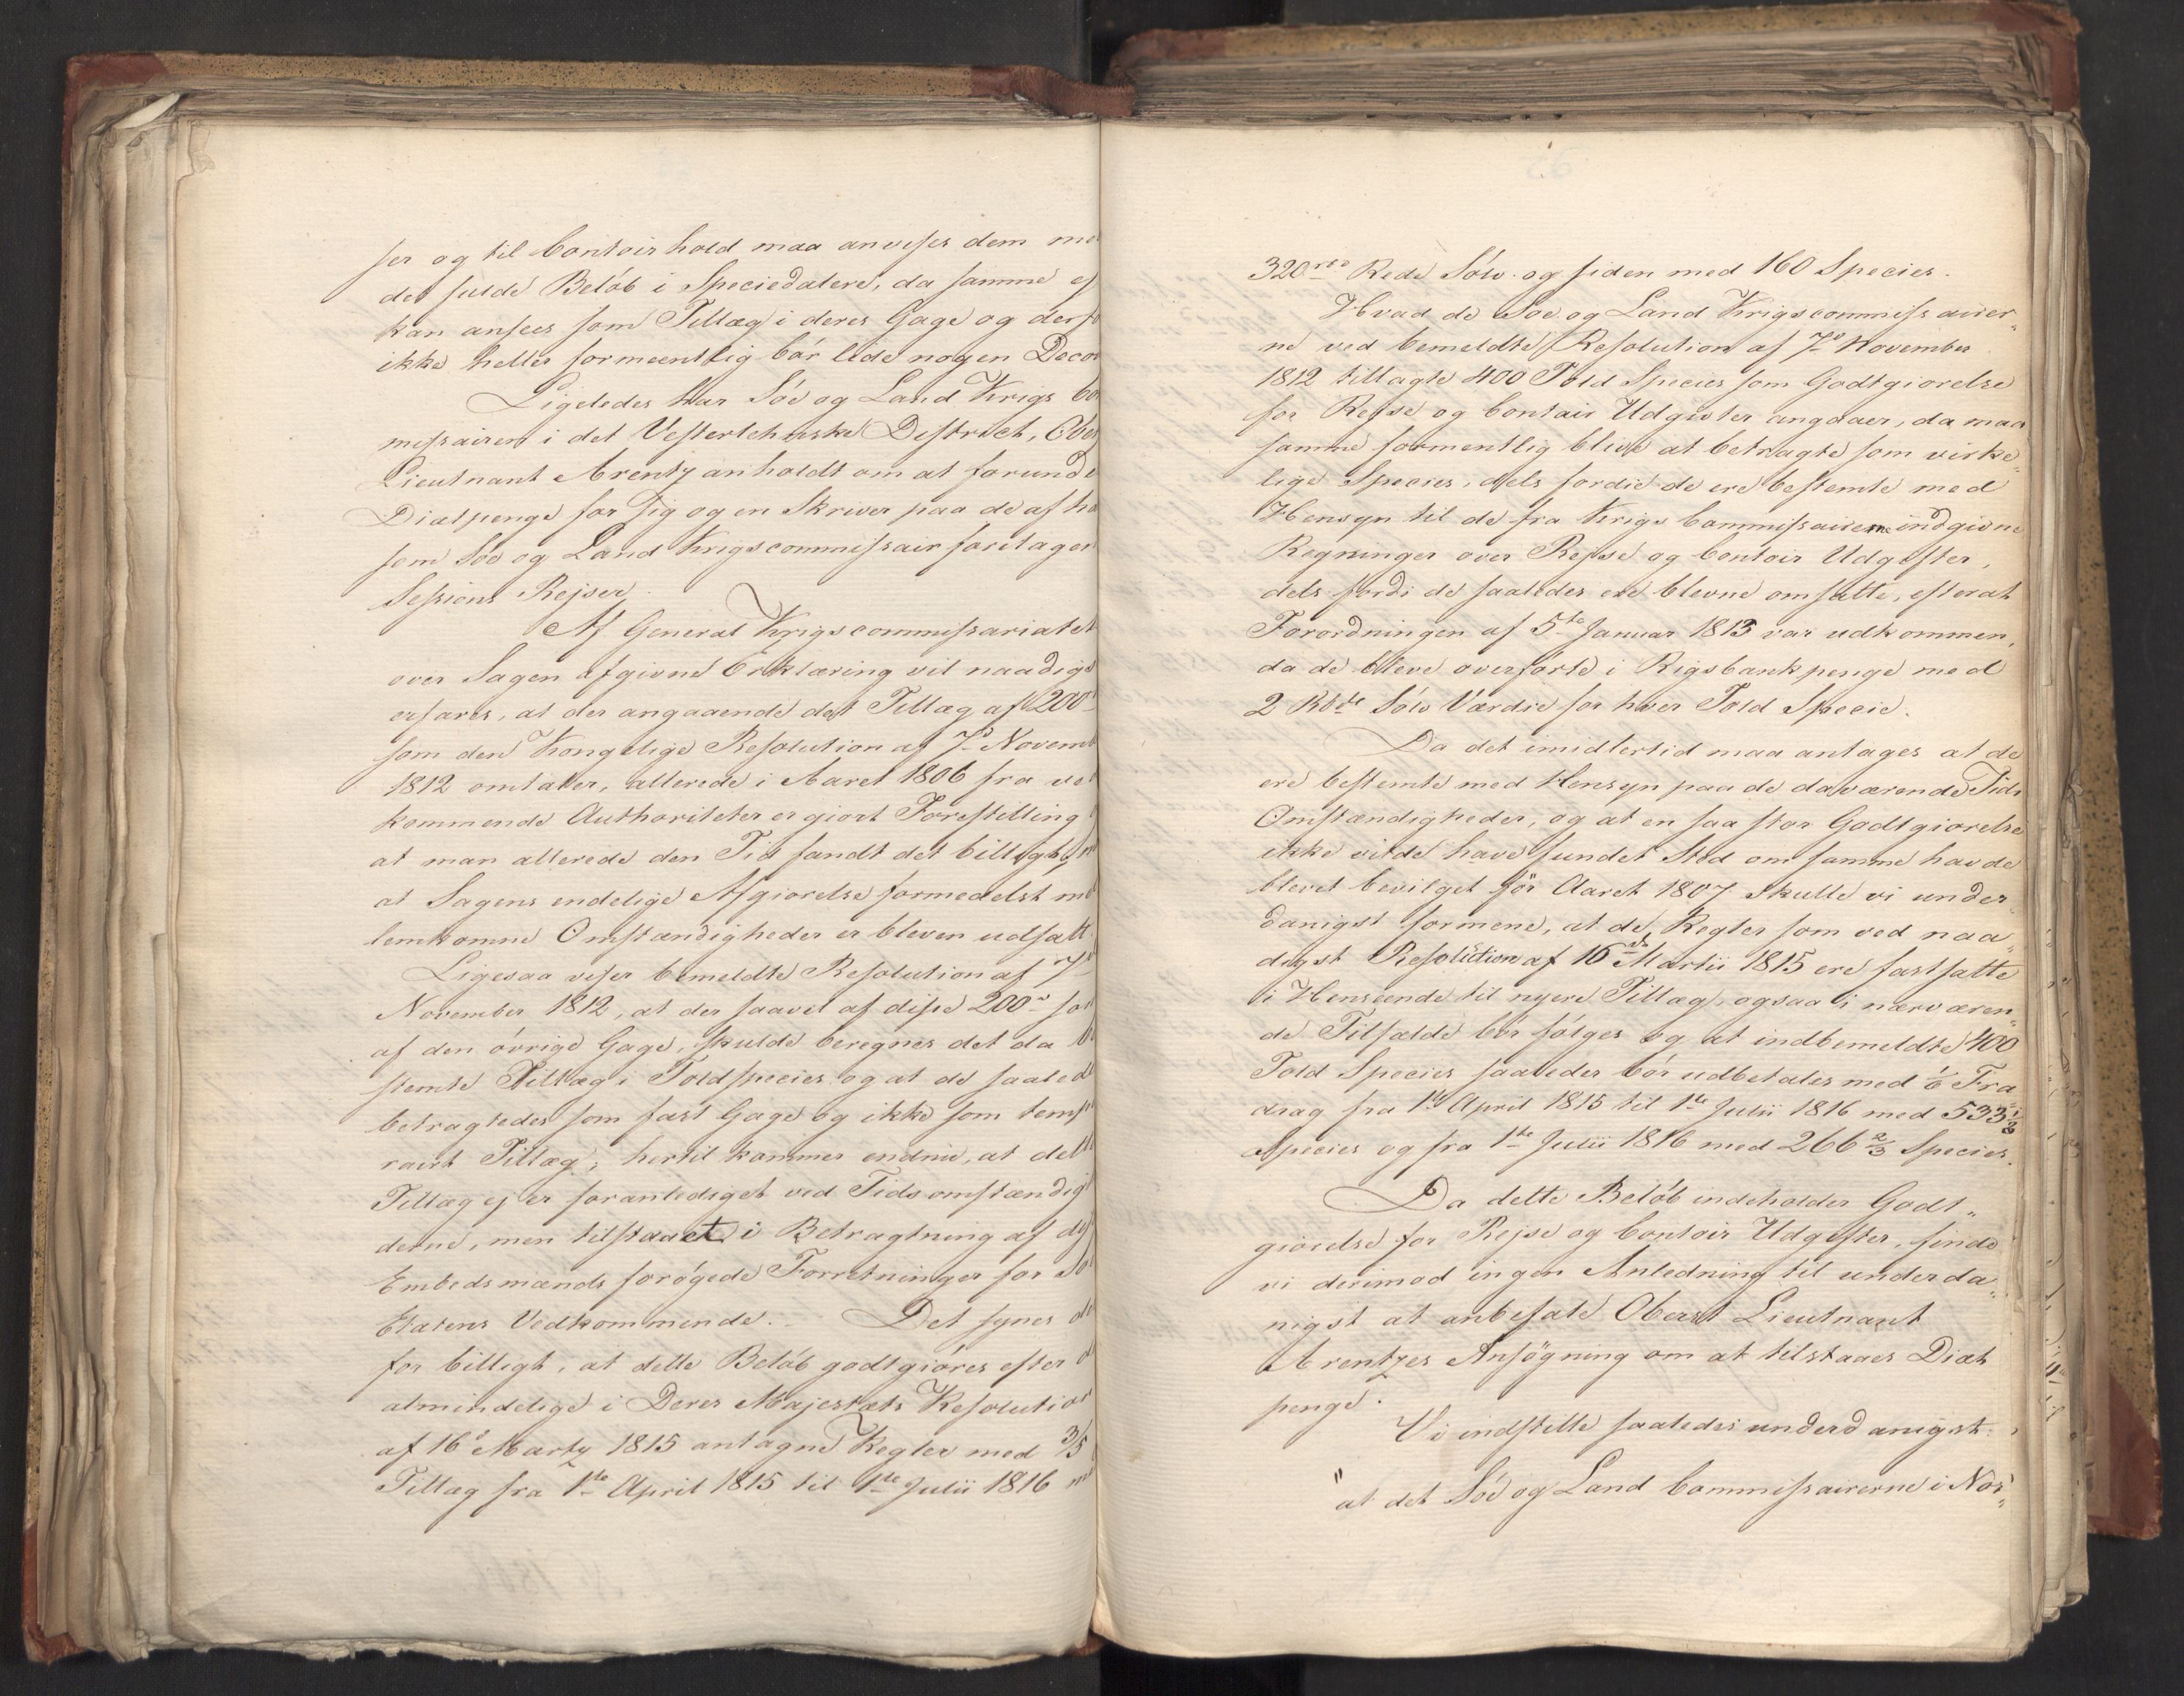 ser og til Contoirhold maa anvises dem me
det fulde Beløb i Speciedalere, da samme ej
kan ansees som Tillæg i deres Gage og derfo
ikke heller formeentlig bør lide nogen Decor
Ligeledes har Søe og Land Krigs Co
missairen i det Vesterlehnske District, Obe
Lieutnant Arentz anholdt om at forunde
Diætpenge for sig og en Skriver paa de af ha
som Søe og Land Krigscommissair foretagen
Sessions Rejser.
Af General Krigscommissariatet
over Sagen afgivne Erklæring vil naadigs
erfares, at der angaaende det Tillæg af 200
som den Kongelige Resolution af 7de Novemb
1812 omtaler, allerede i Aaret 1806 fra ved
kommende Authoriteter er giort Forestilling
at man allerede den Tid fandt det billigt, 
at Sagens endelige Afgiørelse formedelst me
lemkomne Omstændigheder er bleven udsatt.
Ligesaa viser bemeldte Resolution af 7de
November 1812, at der saavel af disse 200 so
af den øvrige Gage, skulde beregnes det da be
stemte Tillæg i Toldspecies og at de saaled
betragtedes som fast Gage og ikke som temp
rairt Tillæg; hertil kommer endnu, at dett
Tillæg ej er foranlediget ved Tidsomstændig
derne, men tilstaaet i Betragtning af dis
Embedsmænds forøgede Forretninger for Sø
Etatens Vedkommende. Det synes de
for billigt, at dette Beløb godtgiøres efter de
almindelige i Deres Majestæts Resolution
af 16de Marty 1815 antagne Regler med 3/5
Tillæg fra 1ste April 1815 til 1ste Julii 1816 med
320 rd Rede Sølv og siden med 160 Species.
Hvad de Søe og Land Krigscommissairer„
ne ved bemeldte Resolution af 7de November
1812 tillagte 400 Told Species som Godtgiørelse
for Rejse og Contoir Udgivter angaaer, da maa
samme formentlig blive at betragte som virke„
lige Species, dels fordie de ere bestemte med
Hensyn til de fra Krigs Commissairerne indgivne
Regninger over Rejse og Contoir Udgifter,
dels fordi de saaledes ere blevne omsatte, efterat
Forordningen af 5te Januar 1813 var udkommen,
da de bleve overførte i Rigsbankpenge med
2 Rbd Sølv Værdie for hver Told Specie.
Da det imidlertid maa antages at de
ere bestemte med Hensyn paa de daværende Tids
Omstændigheder, og at en saa stor Godtgiørelse
ikke vilde have fundet Sted om samme havde
blevet bevilget før Aaret 1807 skulle vi under„
danigst formene, at de Regler som ved naa„
digst Resolution af 16de Martii 1815 ere fastsatte
i Henseende til nyere Tillæg, ogsaa i nærværen„
de Tilfælde bør følges og at indbemeldte 400
Told Species saaledes bør udbetales med 1/6 Fra„
drag fra 1ste April 1815 til 1ste Julii 1816 med 533 1/3
Species og fra 1ste Julii 1816 med 266 2/3 Species.
Da dette Beløb indeholder Godt„
giørelse for Rejse og Contoir Udgifter, finde
vi derimod ingen Anledning til underda„
nigst at anbefale Oberst Lieutnant
Arentzes Ansøgning om at tilstaaes Diæt
penge.
Vi indstille saaledes underdanigst:
"at det Søe og Land Commissairerne i Nor„